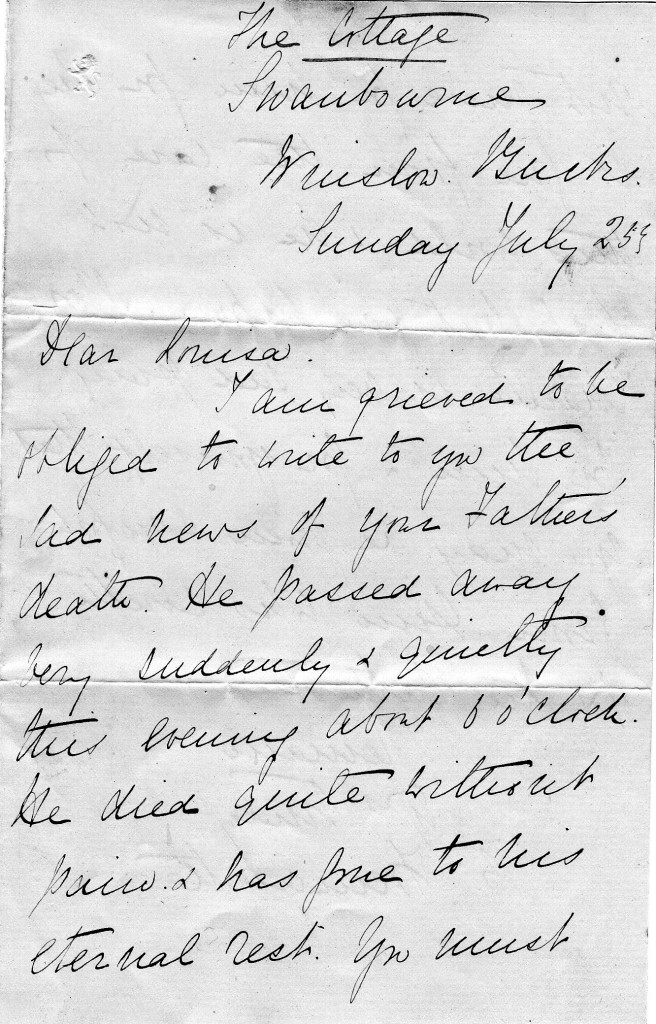 The Cottage
Swanbourne
Winslow. Bucks.
Sunday July 25
Dear Louisa.
I am grieved to be
obliged to write to you the
sad news of your Father's
death. He passed away
very suddenly & quietly
this evening about o'clock.
He died quite without
pain. & has gone to his
eternal rest. You must